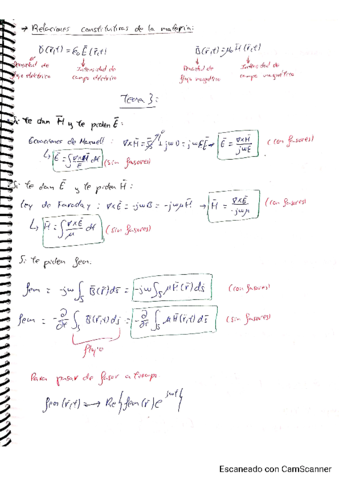 → Relaciones constitutivas de la materia:
D̄(r̄,t) = ε₀ Ē(r̄,t)    B̄(r̄,t) = μ₀ H̄(r̄,t)
Densidad de flujo eléctrico    Intensidad de campo eléctrico    Densidad de flujo magnético    Intensidad de campo magnético
Tema 3:
Si te dan H̄ y te piden Ē:
Ecuaciones de Maxwell: ∇×H̄ = J̄ + jωD̄ = jωεĒ → Ē = ∇×H̄ / jωε (con fasores)
↳ Ē = ∫ ∇×H̄ / ε dt (sin fasores)
Si te dan Ē y te piden H̄:
Ley de Faraday: ∇×Ē = -jωB̄ = -jωμH̄ → H̄ = ∇×Ē / -jωμ (con fasores)
↳ H̄ = ∫ ∇×Ē / μ dt (sin fasores)
Si te piden fem:
fem = -jω ∫s B̄(r̄) ds̄ = -jω ∫s μ H̄(r̄) ds̄ (con fasores)
fem = -∂/∂t ∫s B̄(r̄,t) ds̄ = -∂/∂t ∫s μ H̄(r̄,t) ds̄ (sin fasores)
flujo
Para pasar de fasor a tiempo
fem(r̄,t) → Re{fem(r̄) e^jωt}
Escaneado con CamScanner